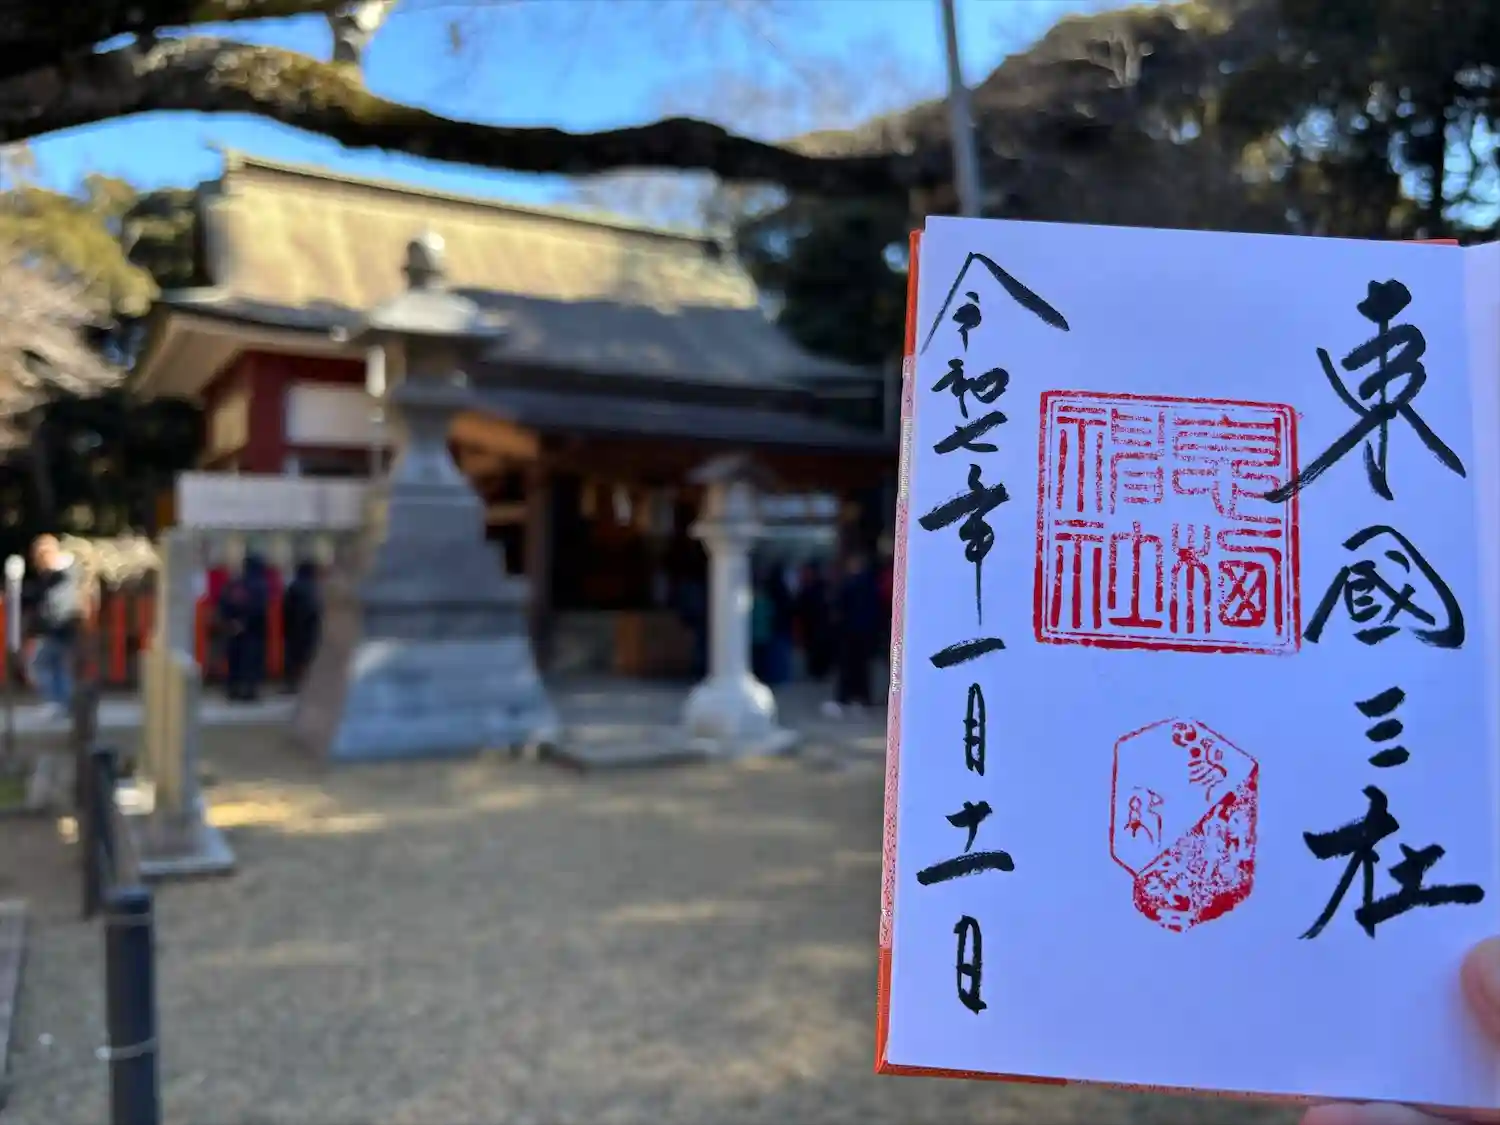 東國三社
息栖神社
令和七年一月十一日